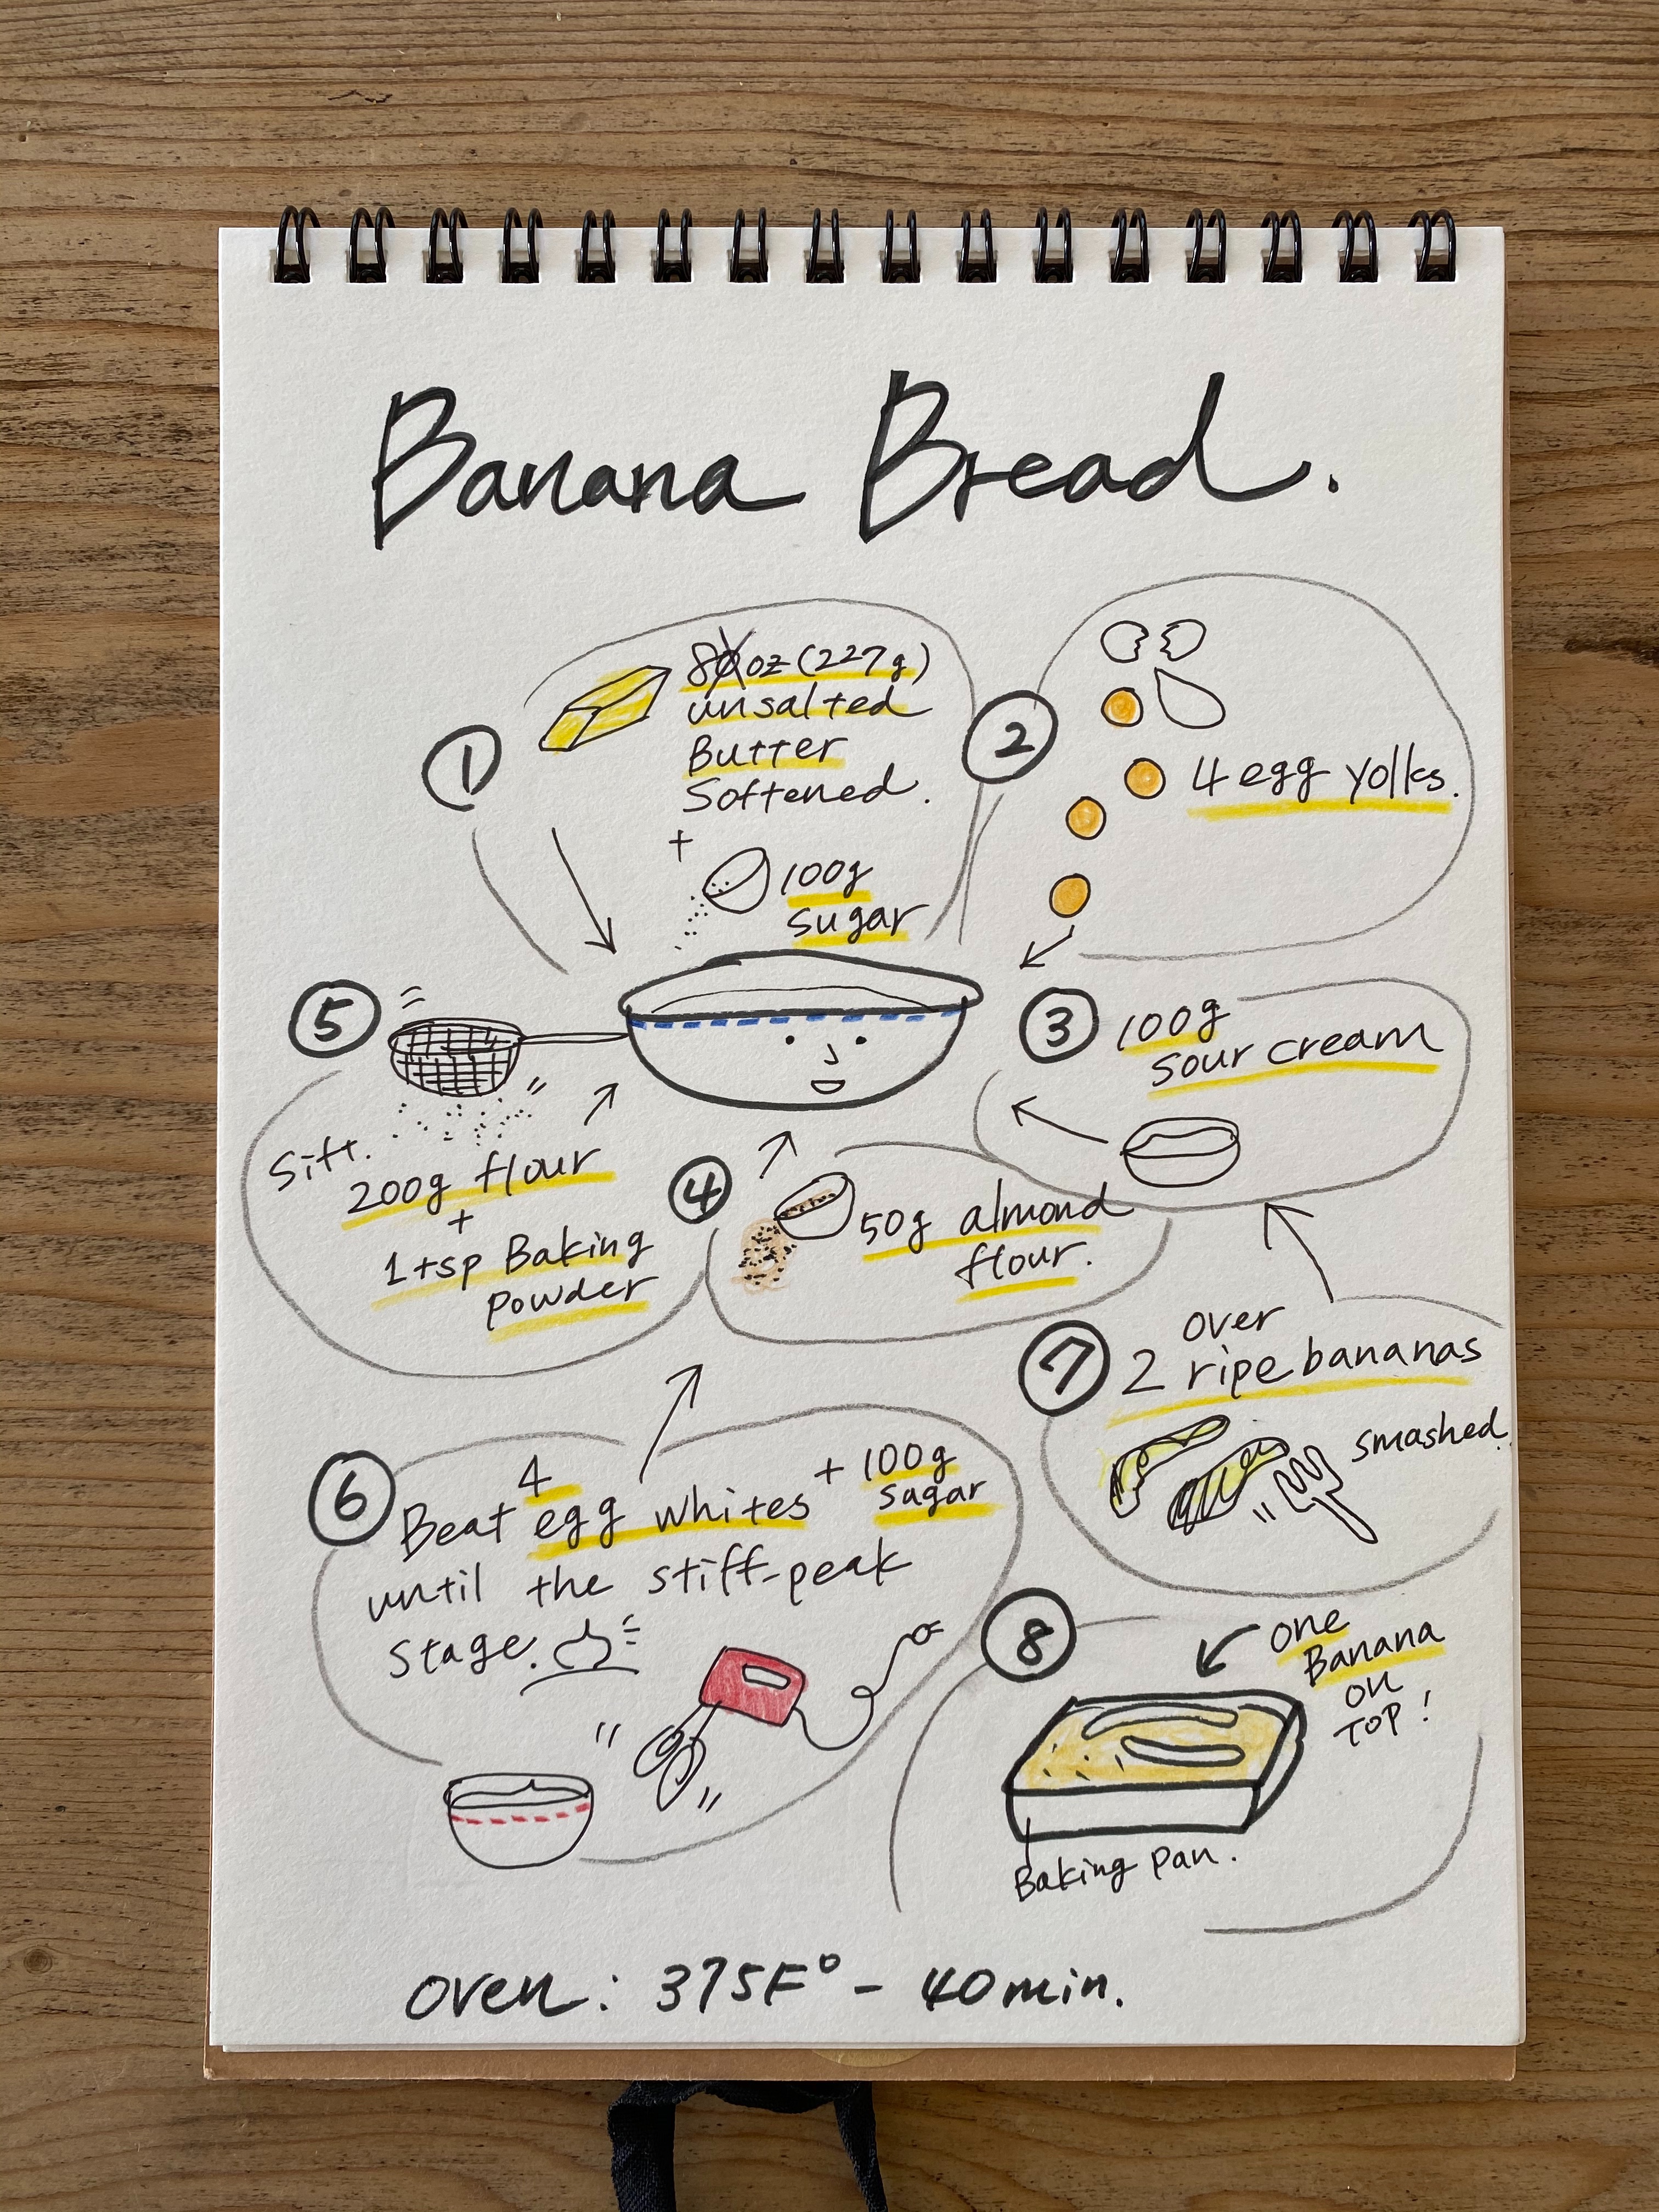 Banana Bread.
1
8oz (227g)
unsalted
Butter
Softened.
+
100g
sugar
2
4 egg yolks.
3
100g
sour cream
4
50g almond
flour.
5
Sift.
200g flour
+
1 tsp Baking
powder
6
4
Beat egg whites + 100g
sagar
until the stiff-peak
stage.
7
over
2 ripe bananas
smashed.
8
one
Banana
on
TOP!
Baking pan.
oven: 375F° - 40min.